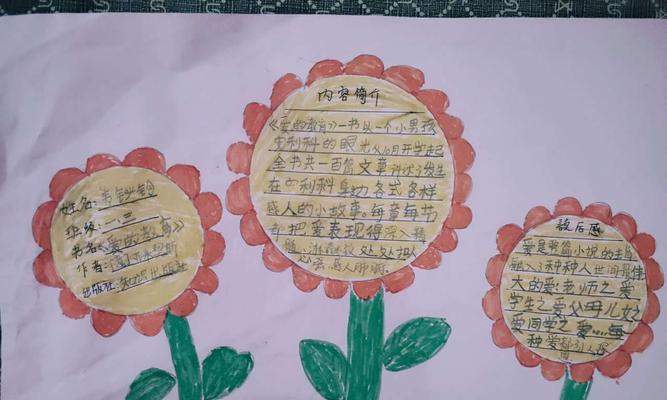 姓名:韦
班级:二.三
书名《爱的教育》
作者:
出版社:知识出版社
内容简介
《爱的教育》一书以一个小男孩
安利科的眼光从10月开学起
全书共一百篇文章讲述了发生
在安利科身边各式各样
感人的小故事。每章每节
都把爱表现得深入精
处处把人
感人
读后感
爱是整篇小说的主旨
融入了种种人世间最伟
大的爱:老师之爱
学生之爱父母儿女之
爱同学之爱……每
种爱都